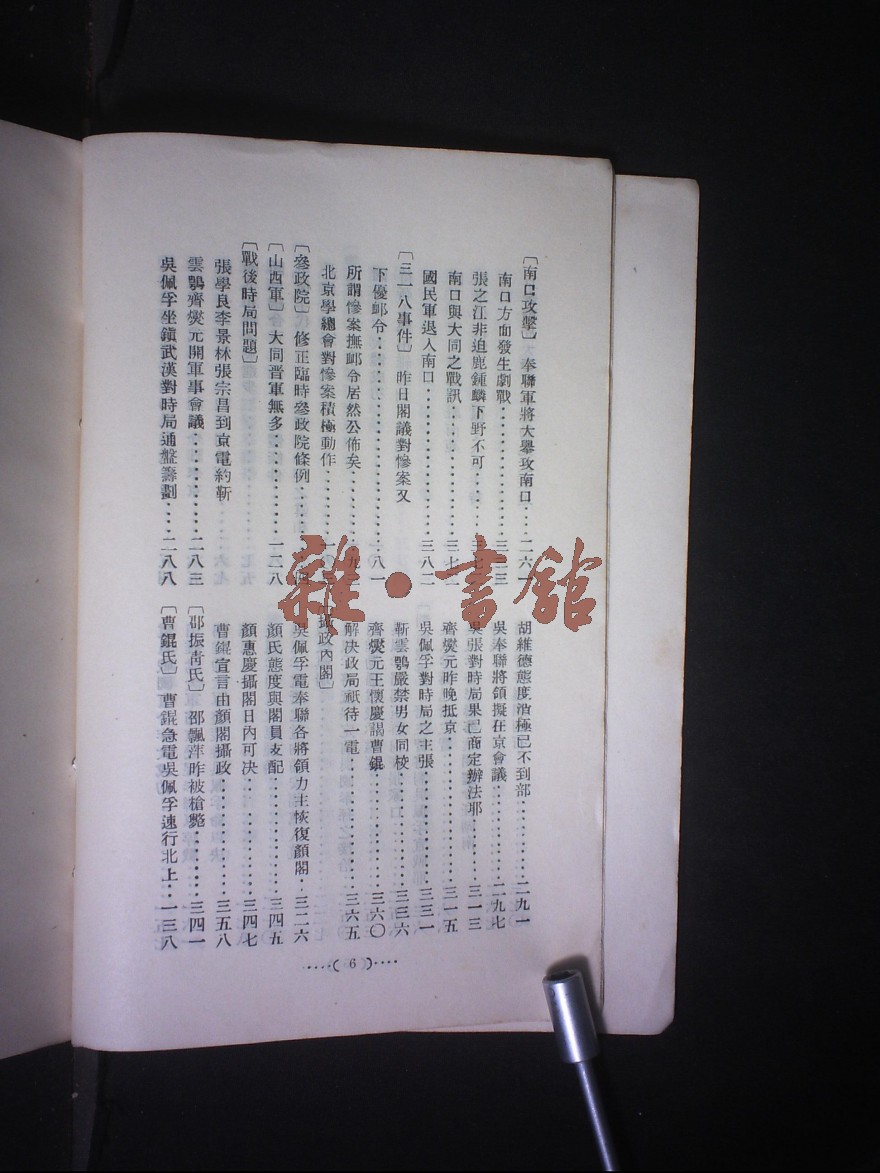 〔南口攻擊〕　奉聯軍將大舉攻南口‥‥一六一
南口方面發生劇戰‥‥‥‥三三三
張之江非迫鹿鍾麟下野不可‥‥三七
南口與大同之戰訊‥‥‥‥三七
國民軍退入南口‥‥‥‥‥三八二
〔三一八事件〕　昨日閣議對慘案又
下優卹令‥‥‥‥‥‥‥八一
所謂慘案撫卹令居然公佈矣‥‥‥九
北京學總會對慘案積極動作‥‥一
〔參政院〕　修正臨時參政院條例‥‥
〔山西軍〕　大同晋軍無多‥‥‥‥一二八
〔戰後時局問題〕
張學良李景林張宗昌到京電約靳
雲鶚齊燮元開軍事會議‥‥‥二八三
吳佩孚坐鎮武漢對時局通盤籌劃‥‥二八八
胡維德態度消極已不到部‥‥‥‥二九一
吳奉聯將領擬在京會議‥‥‥‥二九七
吳張對時局果已商定辦法耶‥‥‥三一三
齊燮元昨晚抵京‥‥‥‥‥‥三一五
吳佩孚對時局之主張‥‥‥‥‥三三一
靳雲鶚嚴禁男女同校‥‥‥‥‥三三六
齊燮元王懷慶謁曹錕‥‥‥‥‥三六〇
解决政局祇待一電‥‥‥‥‥‥三六五
〔攝政內閣〕
吳佩孚電奉聯各將領力主恢復顏閣‥三二六
顏氏態度與閣員支配‥‥‥‥‥三四五
顏惠慶攝閣日內可决‥‥‥‥‥三四七
曹錕宣言由顏閣攝政‥‥‥‥‥三五八
〔邵振青氏〕　邵飄萍昨被槍斃‥‥‥三四一
〔曹錕氏〕　曹錕急電吳佩孚速行北上‥一三八
‥‥( 6 )‥‥
雜·書館